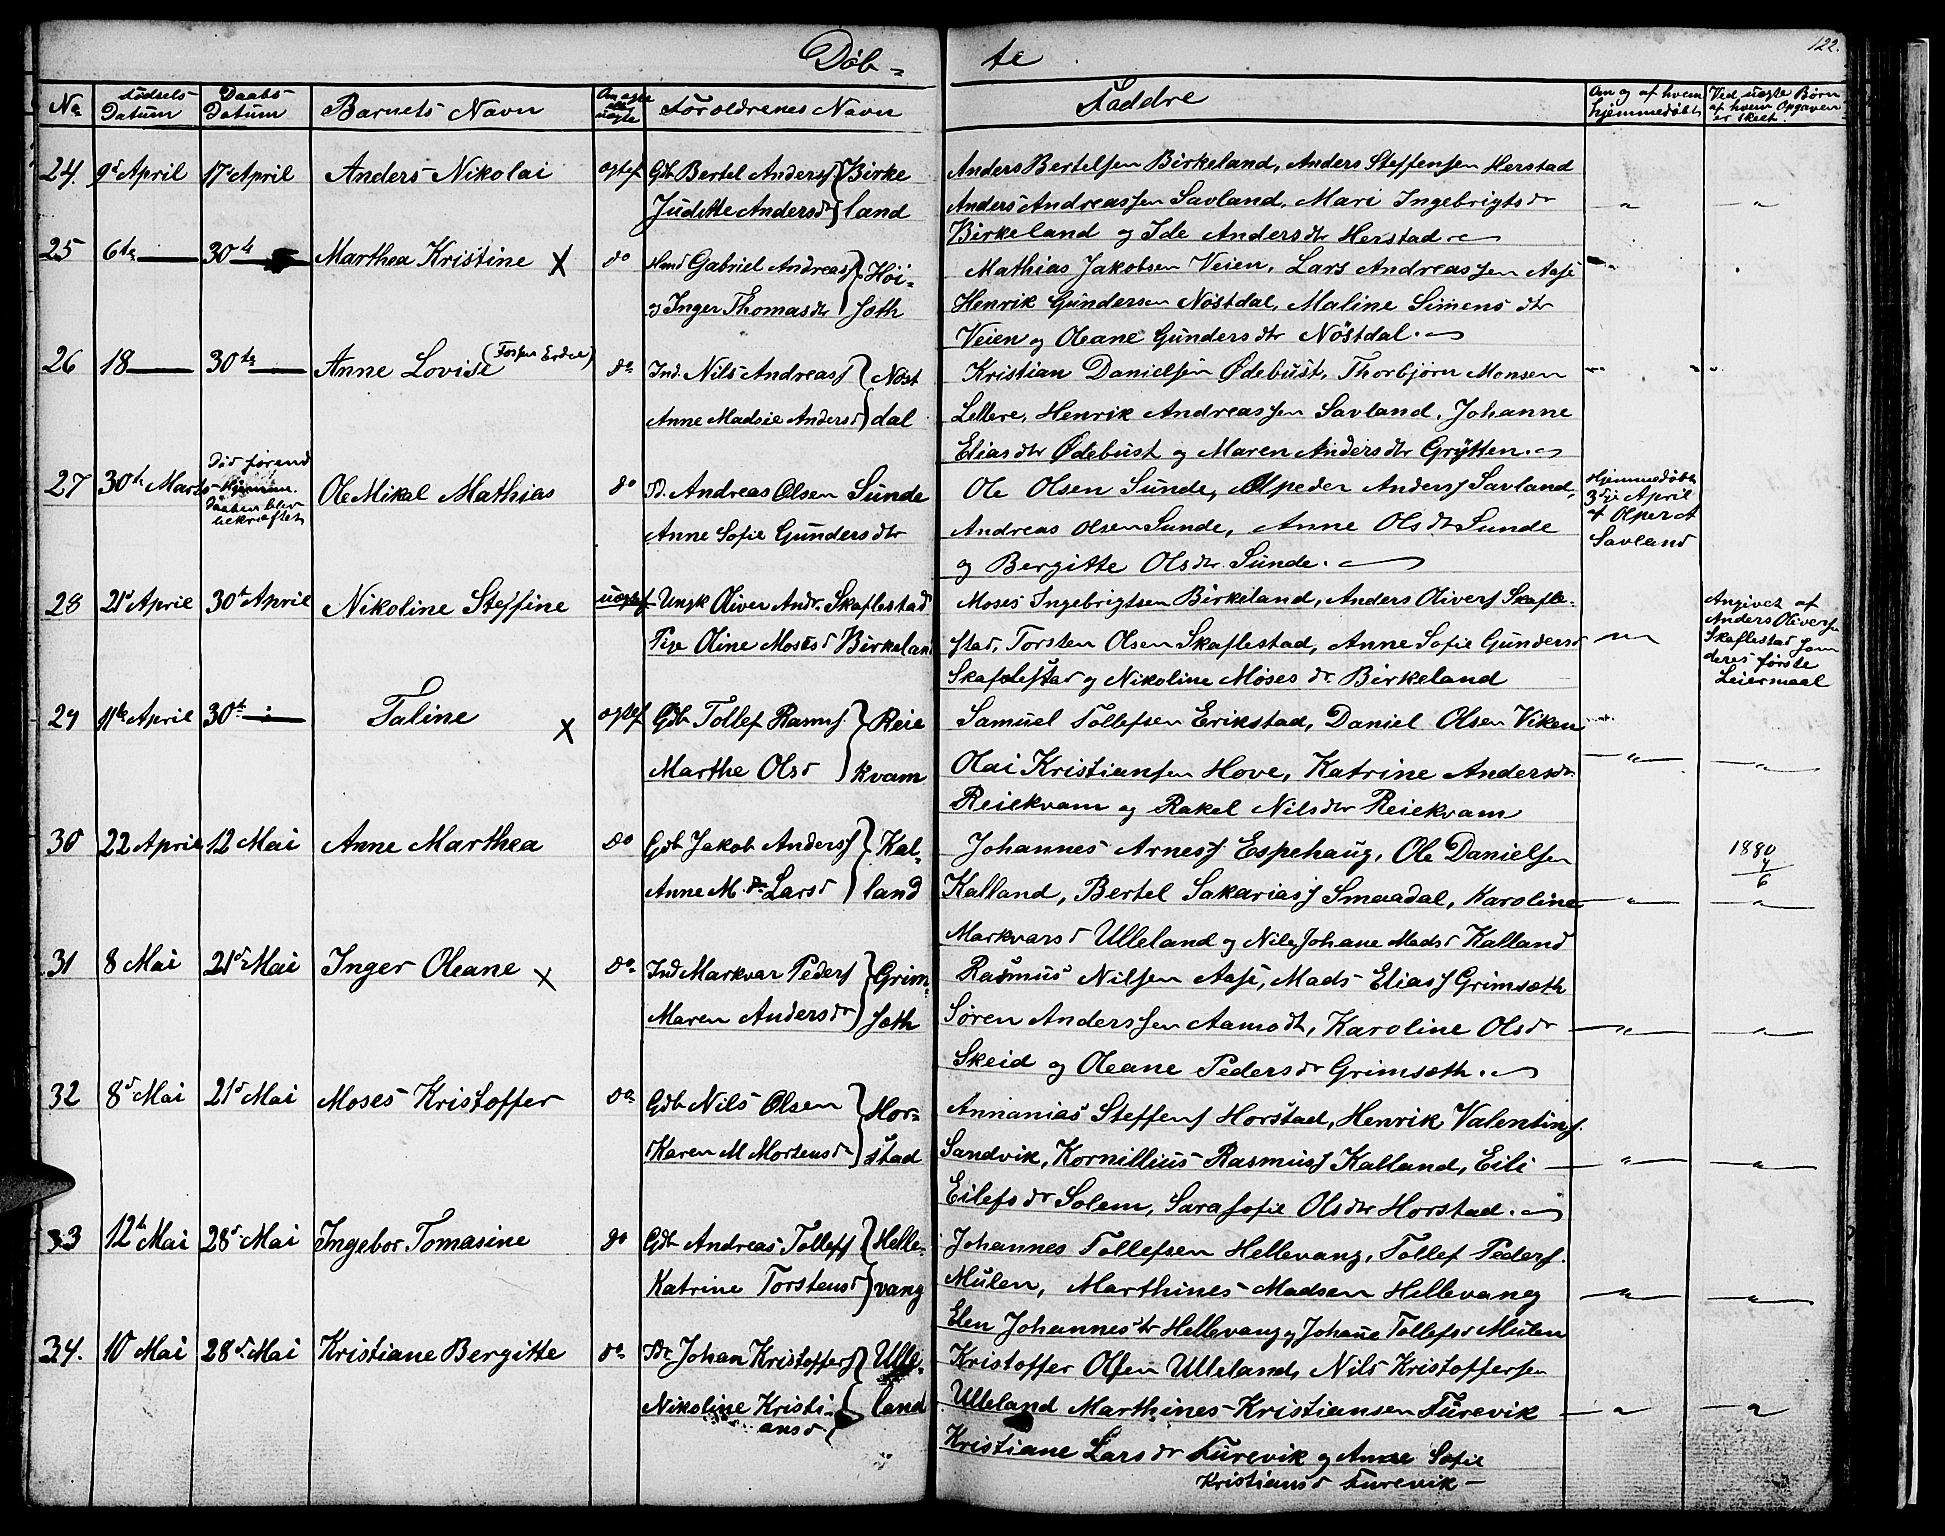 Døb-te
122.
No
Fødsels Datum
Daabs Datum
Barnets Navn
Om ægte ell. uægte
Forældrenes Navn
Faddre
Om og af hvem hjemmedøbt
Ved uægte Børn af hvem Opgaven er skeet.
24. 9d April 17d April Anders Nikolai egtef Gb Bertel Anders } Birke
Juditte Andersdr } land
Anders Bertelsen Birkeland, Anders Steffensen Herstad
Anders Andreassen Savland, Mari Ingebrigtsdr
Birkeland og Ide Andersdtr Herstad.
25 6te 30te Marthea Kristine X do Hmd Gabriel Andreas } Höi-
og Inger Thomasdr } sæth
Mathias Jakobsen Veien, Lars Andreassen Aase
Henrik Gundersen Nöstdal, Maline Simensdtr
Veien og Oleane Gundersdtr Nöstdal.
26 18 30te Anne Lovise do Ind. Nils Andreas } Nöst
Anne Madsie Andersd } dal
Kristian Danielsen Ødebust, Thorbjörn Monsen
Lellere, Henrik Andreassen Savland, Johanne
Eliasdtr Ødebust og Maren Andersdtr Grÿtten.
27 30th Marts Död förend Hjemme Daaben blev bekræftet Ole Mikal Mathias do Andreas Olsen Sunde
Anne Sofie Gundersdtr
Ole Olsen Sunde, Olpeder Anders Savland,
Andreas Olsen Sunde, Anne Olsdtr Sunde
og Bergitte Olsdtr Sunde.
Hjemmedøbt
3die April
af Olper A
Savland
28 21d April 30th April Nikoline Steffine uægtef Ungk Oliver Andr. Skaflestad
Pige Oline Mosesd Birkeland
Moses Ingebrigtsen Birkeland, Anders Olivers Skafle-
stad, Torsten Olsen Skaflestad, Anne Sofie Gundersd
Skaflestad og Nikoline Mosesdr Birkeland
Angivet af
Anders Olivers
Skaflestad som
deres første
Leiermaal
29 11te April 30th Taline X egtef Gb Tollef Rasmus } Reie
Marthe Olsd } kvam
Samuel Tollefsen Erikstad, Daniel Olsen Viken
Olai Kristiansen Hove, Katrine Andersdr
Reiekvam og Rakel Nilsdtr Reiekvam
30 22 April 12 Mai Anne Marthea do Gb Jakob Anders } Kal-
Anne M. Larsd } land
Johannes Arnes Espehaug, Ole Danielsen
Kalland, Bertel Sakarias Smaadal, Karoline
Markvarsd Ulleland og Nils Johane Madsd Kalland
1880
7
6
31 8 Mai 21d Mai Inger Oleane X do Ind Markvar Peders } Grim-
Maren Andersdr } sæth
Rasmus Nilsen Aase, Mads Elias Grimsæth
Søren Anderssen Aamodt, Karoline Olsdr
Skeid og Oleane Pedersdr Grimsæth.
32 8d Mai 21d Mai Moses Kristoffer do Gb Nils Olsen } Hor-
Karen M Mortensd } stad
Annanias Steffens Horstad, Henrik Valentins
Sandvik, Kornillius Rasmus Kalland, Eili
Eilefsdr Solem, Sara Sofie Olsdtr Horstad.
33 12th Mai 28d Mai Ingebor Tomasine do Gb Andreas Tollefs } Helle-
Katrine Torstensd } vang
Johannes Tollefsen Hellevang, Tollef Peders
Mulen, Marthines Madsen Hellevang
Elen Johannesdtr Hellevang og Johane Tollefsd Mulen
34. 10 Mai 28d Mai Kristiane Bergitte do Johan Kristoffers } Ulle-
Nikoline Kristi- } land
ansd
Kristoffer Olsen Ulleland, Nils Kristoffersen
Ulleland Marthines Kristiansen Furevik
Kristiane Larsdr Furevik og Anne Sofie
Kristiansd Furevik